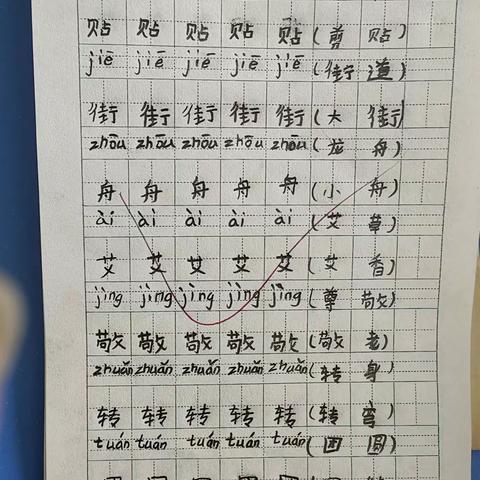 贴 贴 贴 贴 贴 (剪 贴)
jiē jiē jiē jiē jiē (街 道)
街 街 街 街 街 (大 街)
zhōu zhōu zhōu zhōu zhōu (龙 舟)
舟 舟 舟 舟 舟 (小 舟)
ài ài ài ài ài (艾 草)
艾 艾 艾 艾 艾 (艾 香)
jìng jìng jìng jìng jìng (尊 敬)
敬 敬 敬 敬 敬 (敬 老)
zhuǎn zhuǎn zhuǎn zhuǎn zhuǎn (转 身)
转 转 转 转 转 (转 弯)
tuán tuán tuán tuán tuán (团 圆)